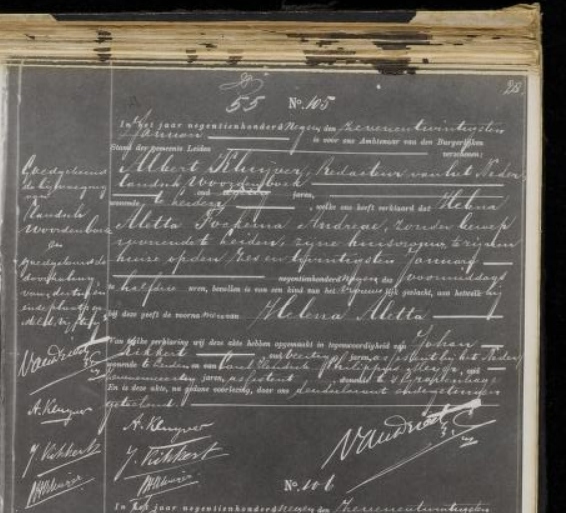 28
55 No. 105
In het jaar negentienhonderd Negen, den zevenentwintigsten
Januari is voor ons Ambtenaar van den Burgerlijken
Stand der gemeente Leiden verschenen:
Albert Kluijver, Redacteur van het Neder-
landsch Woordenboek
oud jaren,
wonende te Leiden, welke ons heeft verklaard dat Helena
Aletta Fockema Andreae, zonder beroep
wonende te Leiden, zijne huisvrouw, te zijnen
huize op den zes en twintigsten Januari
negentienhonderd Negen des voormiddags
te half drie uren, bevallen is van een kind van het vrouwelijk geslacht, aan hetwelk hij
bij deze geeft de voornamen van Helena Aletta
Van welke verklaring wij deze akte hebben opgemaakt in tegenwoordigheid van Johan
Rikkert oud jaren, assistent bij het Neder
wonende te Leiden, en van Carel Hendrik Philippus oud
jaren, assistent wonende te
En is deze akte, na gedane voorlezing, door ons, den declarant en de getuigen
geteekend.
A. Kluyver
J. Rikkert
No. 106
In het jaar negentienhonderd Negen, den zevenentwintigsten
Goedgekeurd
de bijvoeging
van
landsch
Woordenboek
en
goedgekeurd de
doorhaling
van
A. Kluyver
J. Rikkert